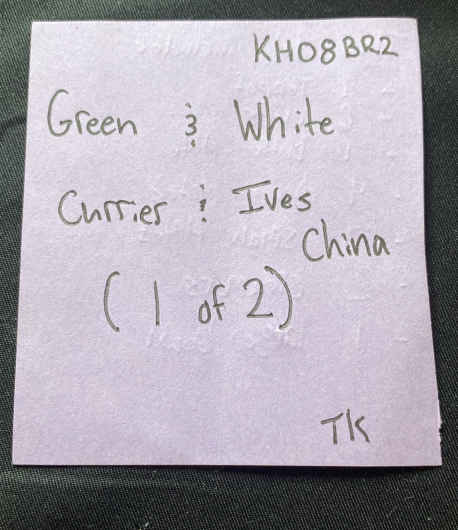 KH08BR2
Green & White
Currier & Ives
China
(1 of 2)
TK